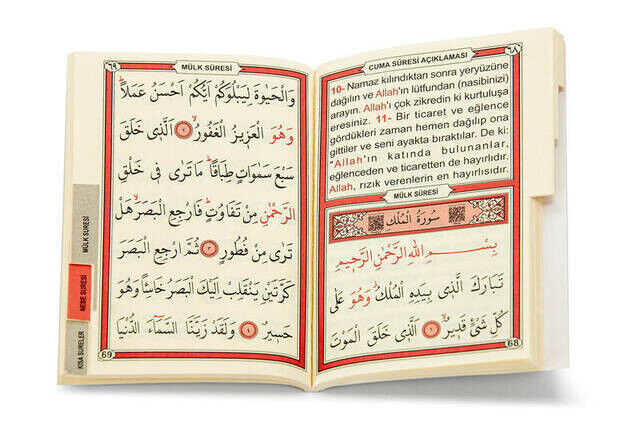 CUMA SÛRESİ AÇIKLAMASI
٦٨
10- Namaz kılındıktan sonra yeryüzüne
dağılın ve Allah'ın lütfundan (nasibinizi)
arayın. Allah'ı çok zikredin ki kurtuluşa
eresiniz. 11- Bir ticaret ve eğlence
gördükleri zaman hemen dağılıp ona
gittiler ve seni ayakta bıraktılar. De ki:
"Allah'ın katında bulunanlar,
eğlenceden ve ticaretten de hayırlıdır.
Allah, rızık verenlerin en hayırlısıdır.
MÜLK SÛRESİ
سُورَةُ الْمُلْكِ
بِسْمِ اللّٰهِ الرَّحْمٰنِ الرَّحِيمِ
تَبَارَكَ الَّذ۪ي بِيَدِهِ الْمُلْكُۘ وَهُوَ عَلٰى
كُلِّ شَيْءٍ قَد۪يرٌۙ ١ اَلَّذ۪ي خَلَقَ الْمَوْتَ
68
٦٩
MÜLK SÛRESİ
وَالْحَيٰوةَ لِيَبْلُوَكُمْ اَيُّكُمْ اَحْسَنُ عَمَلاًۜ
وَهُوَ الْعَز۪يزُ الْغَفُورُۙ ٢ اَلَّذ۪ي خَلَقَ
سَبْعَ سَمٰوَاتٍ طِبَاقًاۜ مَا تَرٰى ف۪ي خَلْقِ
الرَّحْمٰنِ مِنْ تَفَاوُتٍۜ فَارْجِعِ الْبَصَرَۙ هَلْ
تَرٰى مِنْ فُطُورٍ ٣ ثُمَّ ارْجِعِ الْبَصَرَ
كَرَّتَيْنِ يَنْقَلِبْ اِلَيْكَ الْبَصَرُ خَاسِئًا وَهُوَ
حَس۪يرٌ ٤ وَلَقَدْ زَيَّنَّا السَّمَٓاءَ الدُّنْيَا
69
MÜLK SÛRESİ
NEBE SURESİ
KISA SURELER